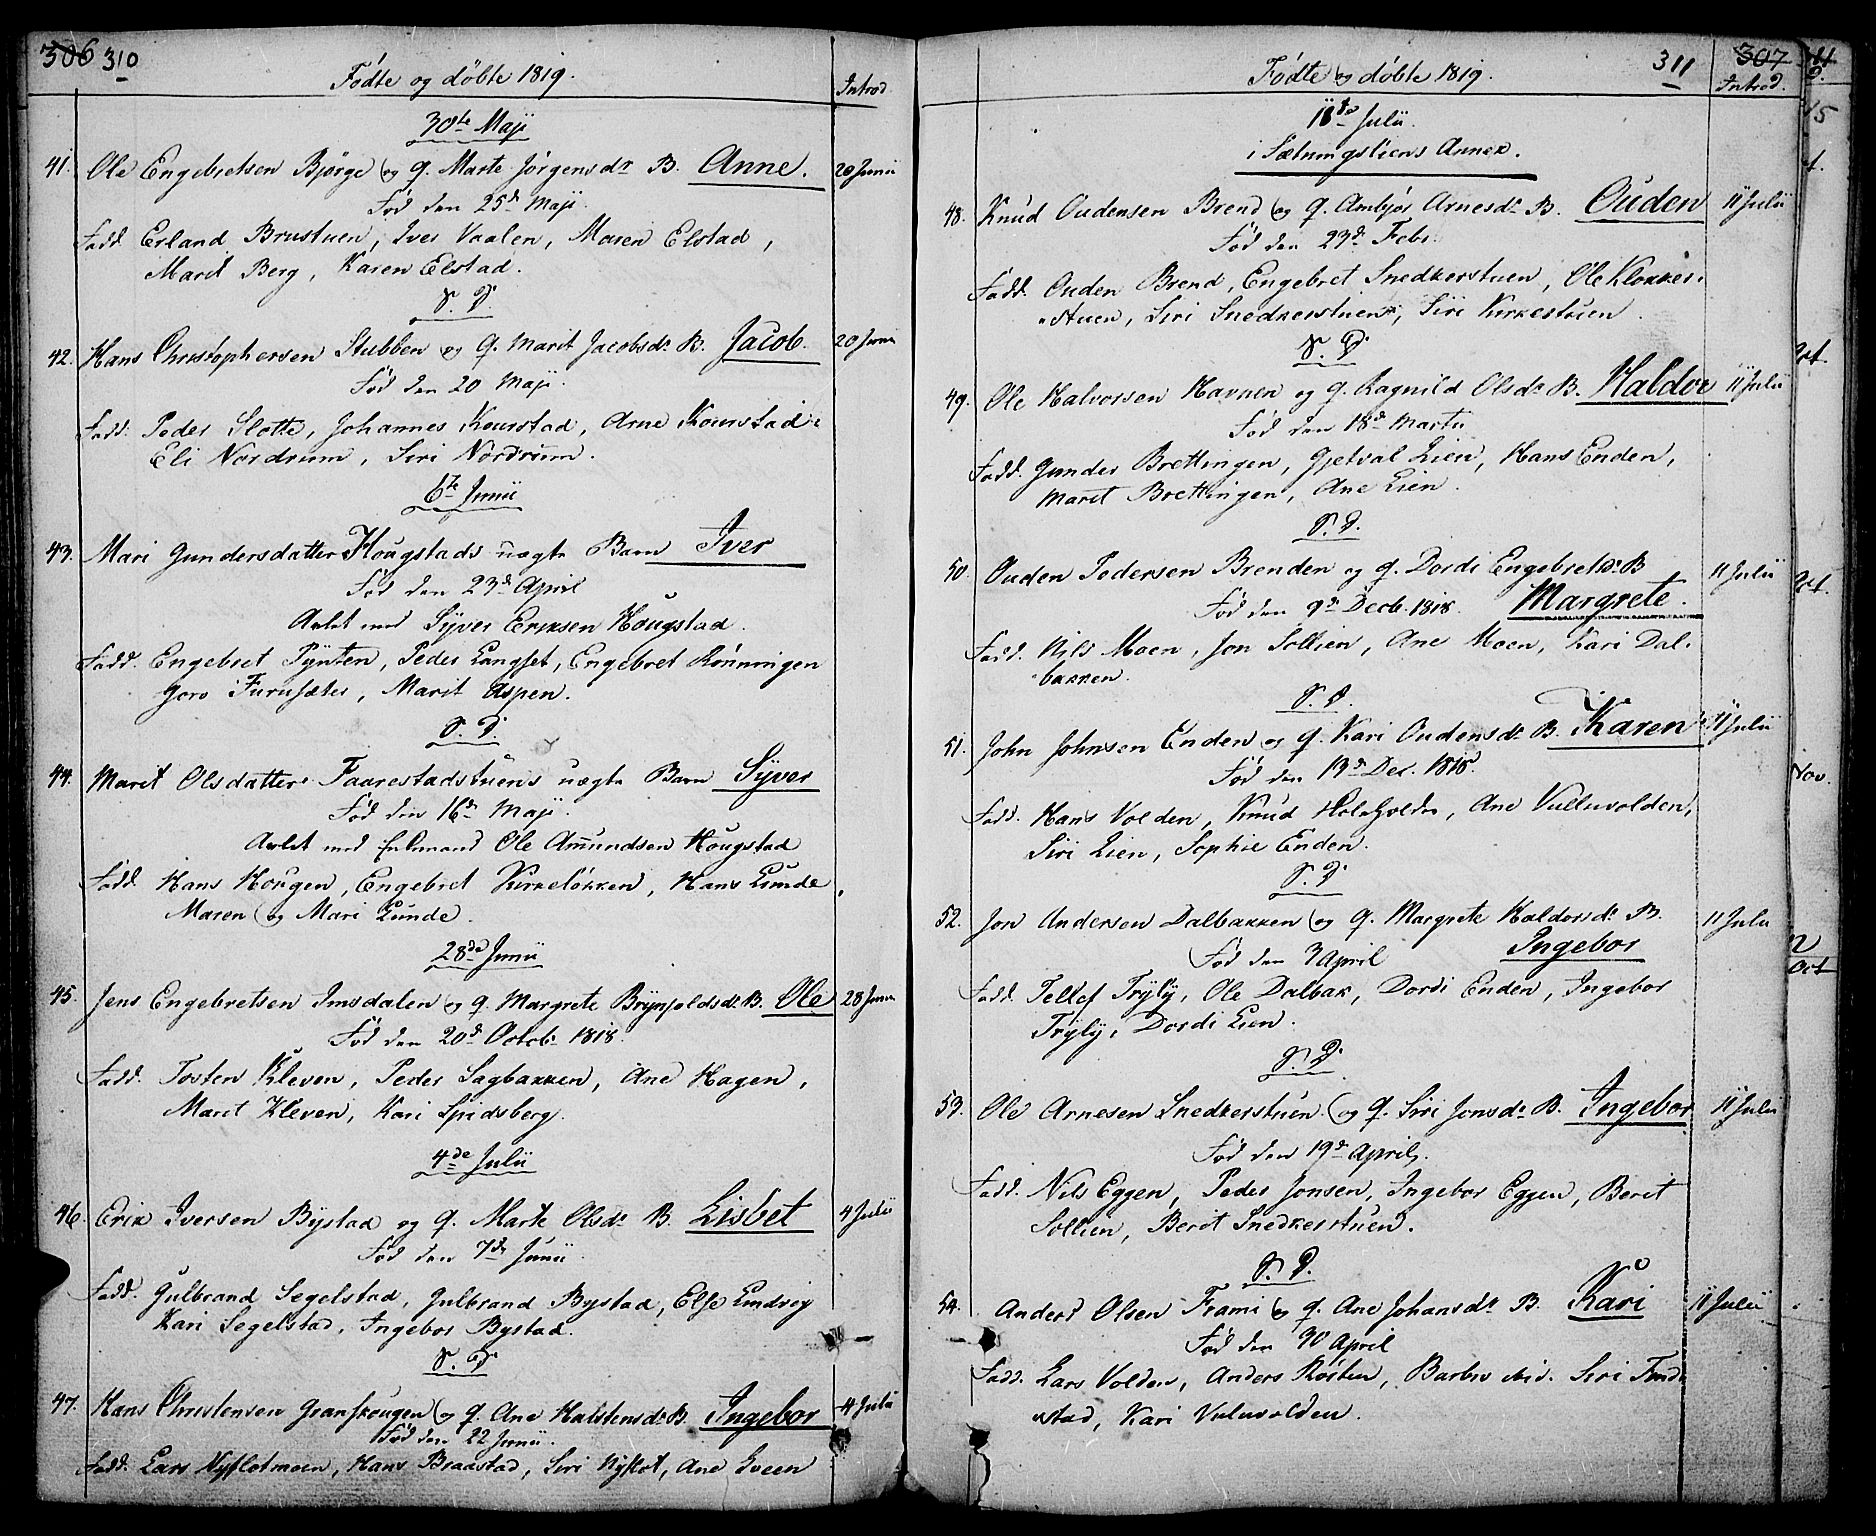 306 310
Fødte og døbte 1819.
Introd
30te Maji
41. Ole Engebretsen Bjørge og q. Marte Jørgensdr B. Anne. 20 Junii
Fød den 25de Maji.
Fadd. Erland Brustuen, Iver Vaalen, Maren Elstad,
Marit Berg, Karen Elstad.
S. D.
42. Hans Christophersen Stubben og q. Marit Jacobsdr B. Jacob. 20 Junii
Fød den 20 Maji.
Fadd. Peder Slotte, Johannes Kourstad, Arne Kourstad
Eli Nordrum, Siri Nordrum.
6te Junii
43. Mari Gundersdatter Hougstads uægte Barn Iver
Fød den 23de April
Avlet med Syver Eriksen Hougstad.
Fadd. Engebret Pynten, Peder Langset, Engebret Rønningen
Goro Furusæter, Marit Aspen.
S. D.
44. Marit Olsdatter Faarestadstuens uægte Barn Syver
Fød den 16de Maji.
Avlet med Enkemand Ole Amundsen Hougstad
Fadd. Hans Hougen, Engebret Kirkeløkken, Hans Lunde
Maren og Mari Lunde.
28de Junii
45. Jens Engebretsen Imsdalen og q. Margrete Brynjoldsdr B. Ole 28 Junii
Fød den 20de Octob. 1818.
Fadd. Tosten Kleven, Peder Sagbakken, Ane Hagen,
Maret Kleven, Kari Spidsberg.
4de Julii
46. Erik Iversen Bystad og q. Marte Olsdr B. Lisbet 4 Julii
Fød den 7de Junii
Fadd. Gulbrand Segelstad, Gulbrand Bystad, Else Lundvig
Kari Segelstad, Ingebor Bystad.
S. D.
47. Hans Christensen Granskougen og q. Ane Halstensdr B. Ingebor 4 Julii
Fød den 22 Junii.
Fadd. Lars Nyflotmoen, Hans Braastad, Siri Nyflot, Ane Sveen
Fødte og døbte 1819.
311 307
Introd.
11te Julii.
i Sætningsliens Annex.
48. Knud Oudensen Brend og q. Ambjør Arnesdr B. Ouden 11 Julii
Fød den 23de Febr.
Fadd. Ouden Brend, Engebret Snedkerstuen, Ole Klokker-
stuen, Siri Snedkerstuen, Siri Kirkestuen.
S. D.
49. Ole Halvorsen Havnen og q. Ragnild Olsdr B. Haldor 11 Julii
Fød den 18de Martii
Fadd. Gunder Brettingen, Gjetval Lien, Hans Enden,
Marit Brettingen, Ane Lien.
S. D.
50. Ouden Pedersen Brenden og q. Dordi Engebretsdr B 11 Julii
Fød den 9de Decb. 1818. Margrete.
Fadd. Nils Moen, Jon Sollien, Ane Moen, Kari Dal-
bakken.
S. D.
51. John Johnsen Enden og q. Kari Oudensdr B. Karen 11 Julii
Fød den 13de Dec. 1818.
Fadd. Hans Volden, Knud, Ane Vuluvolden,
Siri Lien, Sophie Enden.
S. D.
52. Jon Andersen Dalbakken og q. Margrete Haldorsdr B. 11 Julii
Fød den 3 April Ingebor
Fadd. Tellef Tryly, Ole Dalbak, Dordi Enden, Ingebor
Tryly, Dordi Lien.
S. D.
53. Ole Arnesen Snedkerstuen og q. Siri Jonsdr B. Ingebor 11 Julii
Fød den 19de April.
Fadd. Nils Eggen, Peder Jonsen, Ingebor Eggen, Berit
Sollien, Berit Snedkerstuen.
S. D.
54. Anders Olsen Frami og q. Ane Johansdr B. Kari 11 Julii
Fød den 30 April
Fadd. Lars Volden, Anders Røsten, Barbro, Siri Find-
stad, Kari Vuluvolden.
Nov.
Oct